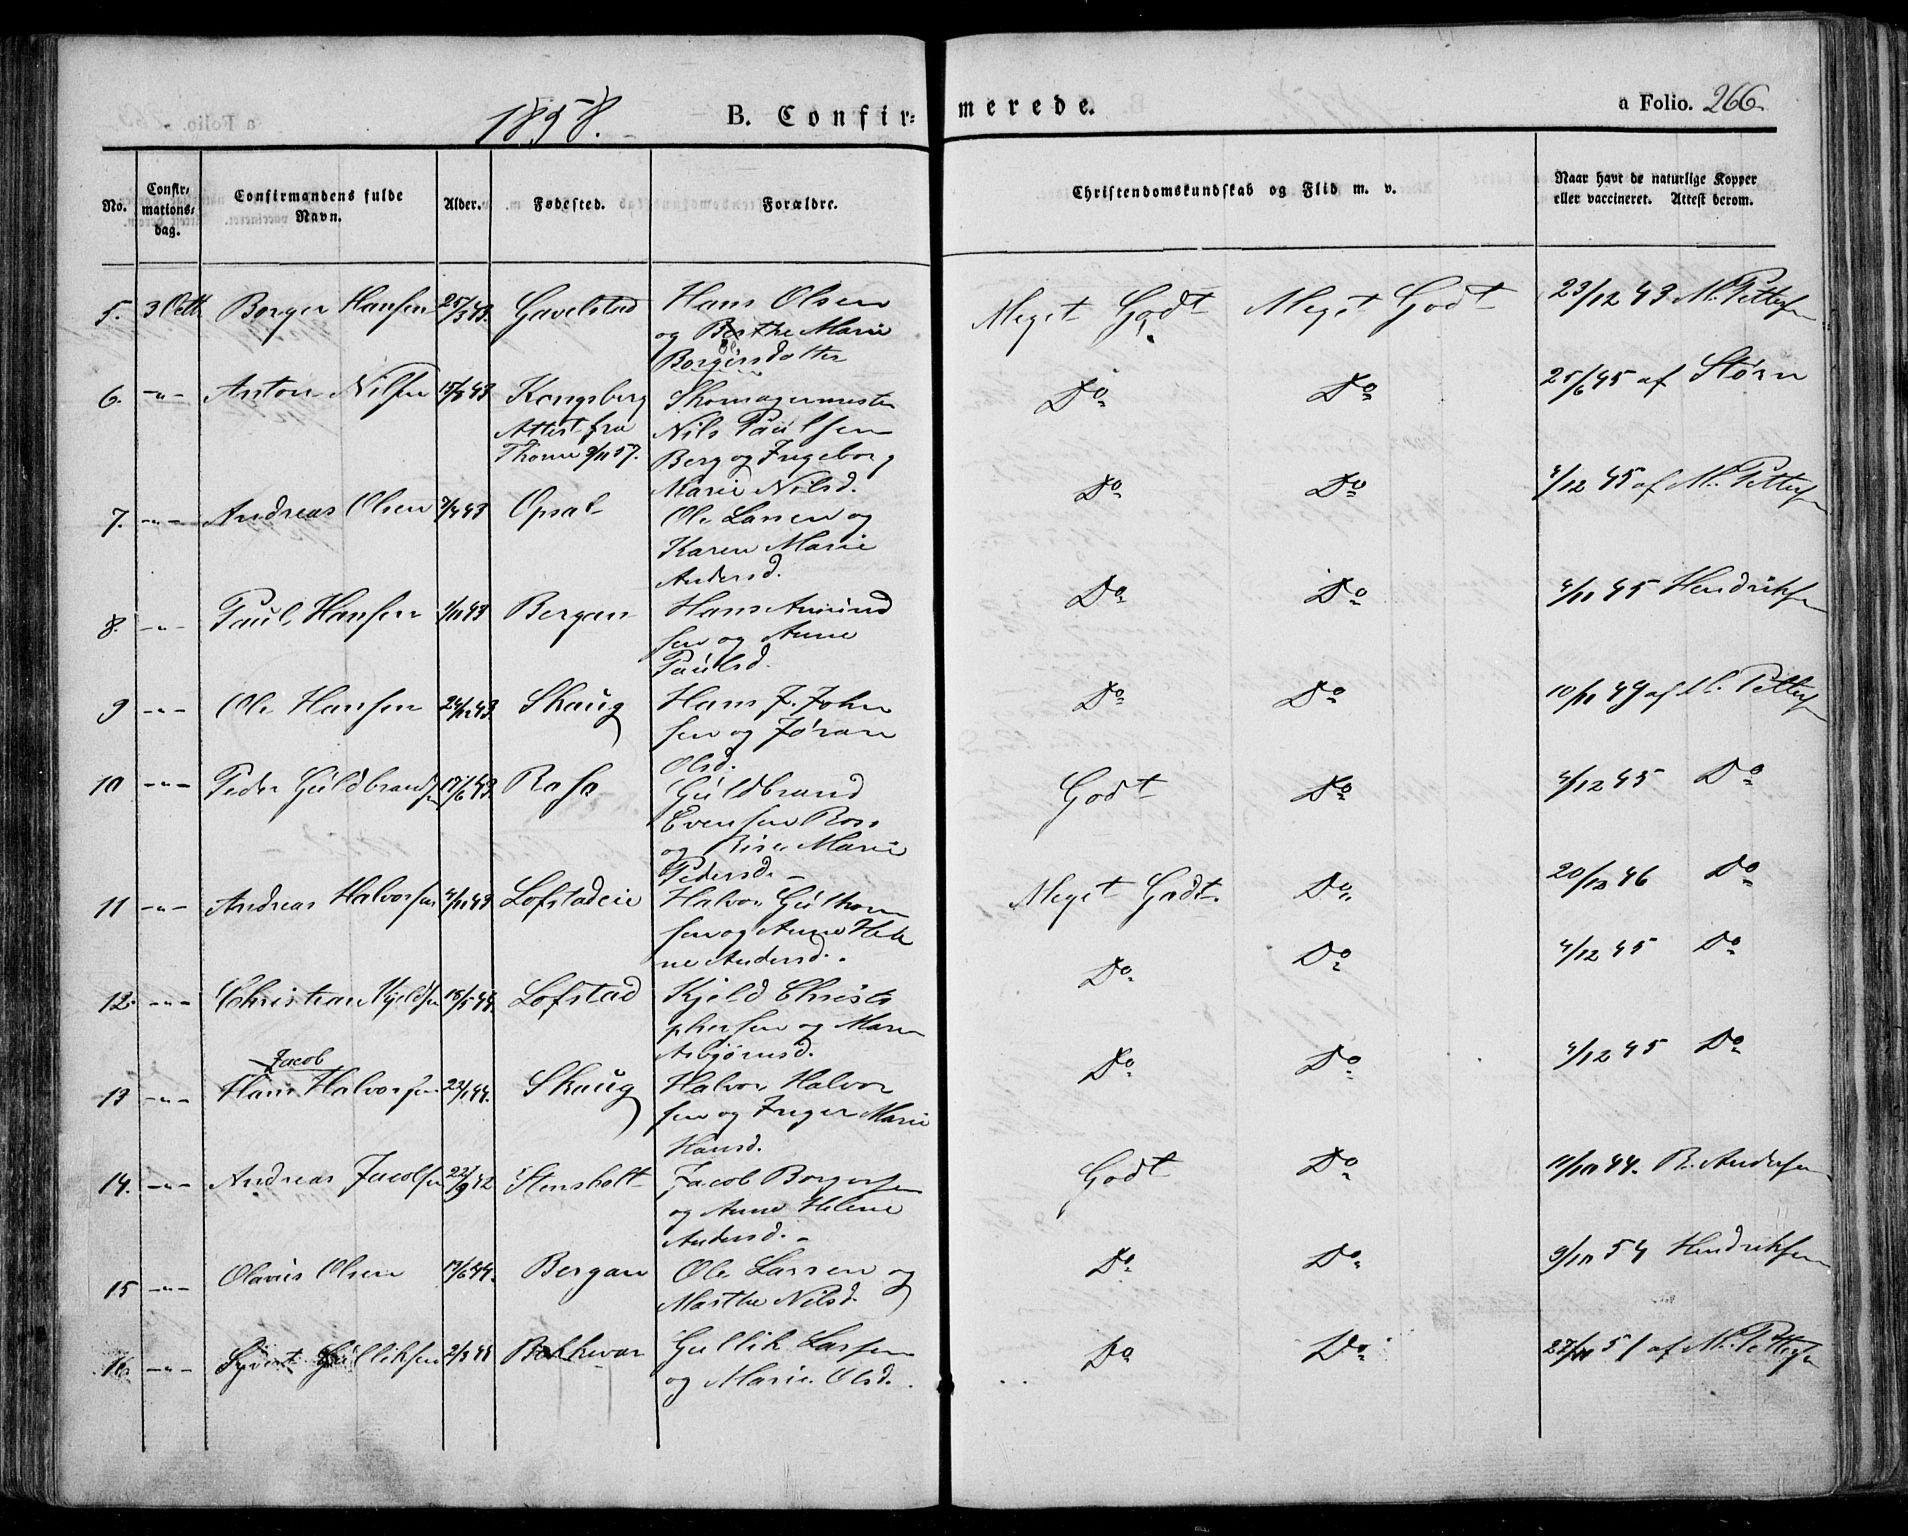 1858.
B. Confirmerede.
a Folio. 266.
No.
Confirmationsdag.
Confirmandens fulde Navn.
Alder.
Fødested.
Forældre.
Christendomskundskab og Flid m. v.
Naar havt de naturlige Kopper
eller vaccineret. Attest derom.
5. 3 Octb Borger Hansen 25/3 43. Gavelstad Hans Olsen Meget Godt Meget Godt 23/12 43 M. Pettersen
og Berthe Marie
Borgersdatter
6. -"- Anton Nilsen 15/8 43 Kongsberg Skomagermester Do Do 25/6 45 af Størn
Attest fra Nils Paulsen
Thorne 9/11 57. Berg og Ingeborg
Marie Nilsd.
7. -"- Andreas Olsen 7/4 43 Opsal Ole Larsen og Do Do 4/12 45 af M. Pettersen
Karen Marie
Andersd.
8. -"- Paul Hansen 1/11 43 Bergan Hans Amund Do Do 4/11 45 Hendriksen
sen og Anne
Paulsd.
9 -"- Ole Hansen 24/12 43 Skaug Hans J. John Do Do 10/11 49 af M. Pettersen
sen og Jøran
Olsd.
10 -"- Peder Guldbrandsen 17/6 43 Rosa Guldbrand Godt Do 4/12 45 Do
Evensen Ross
og Marie
Pedersd. -
11 -"- Andreas Halvorsen 4/11 43 Lofstadeie Halvor Guthorm Meget Godt. Do 20/12 46 Do
sen og Anne Hele
ne Andersd. -
12. -"- Christian Kjeldsen 18/5 44. Lofstad Kjeld Christo Do Do 4/12 45 Do
phersen og Maren
Asbjørnsd.
Jacob
13 -"- Hans Halvorsen 22/1 44. Skaug Halvor Halvor Do Do 4/12 45 Do
sen og Inger Marie
Hansd.
14. -"- Andreas Jacobsen 22/9 42 Stensholt Jacob Borgersen Godt Do 11/10 44. R. Andersen
og Anne Helene
Andersd. -
15 -"- Olavus Olsen 17/6 44. Bergan Ole Larsen og Do Do 9/10 54 Hendriksen
Marthe Nilsd.
16. -"- Syvert Gulliksen 2/3 44 Bekkevar Gullik Larsen Do Do 27/10 51 af M. Pettersen
og Marie Olsd.